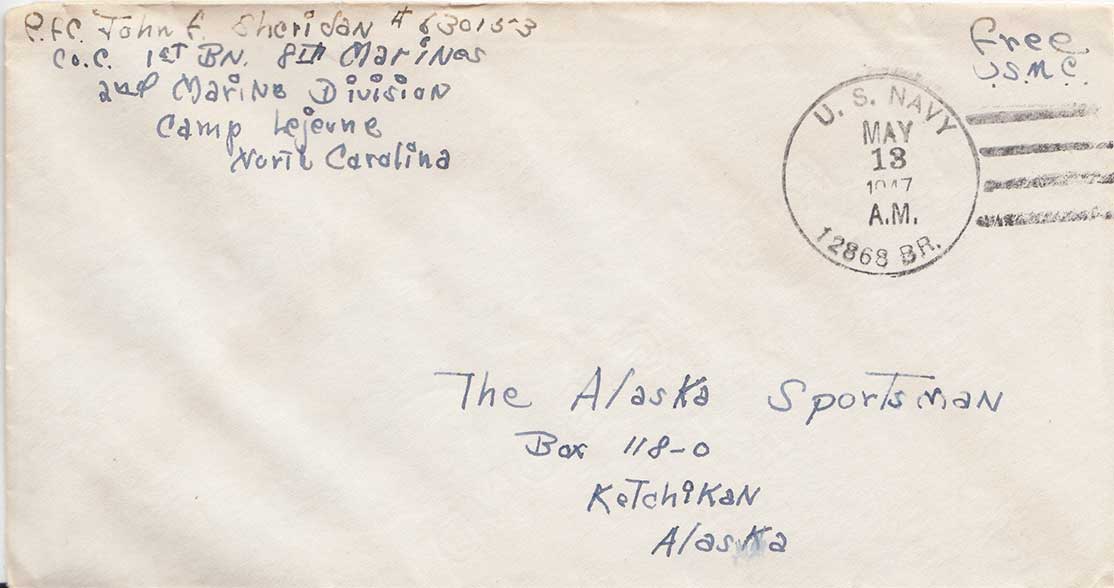 P.f.C. John F. Sheridan # 630153
Co. C. 1ST BN. 8TH Marines
2nd Marine Division
Camp Lejeune
North Carolina
Free
U.S.M.C.
U. S. NAVY
MAY
13
1947
A.M.
12868 BR.
The Alaska Sportsman
Box 118-0
Ketchikan
Alaska